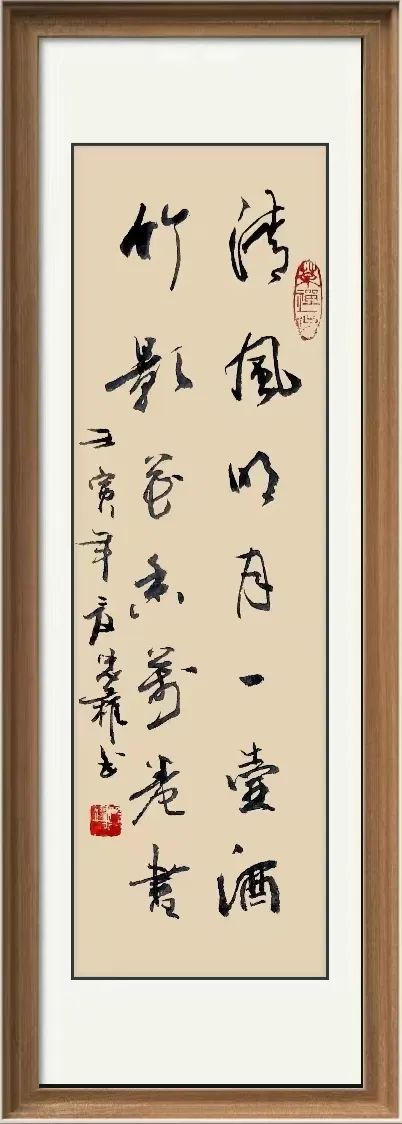 清風明月一壺酒
竹影花香萬卷書
壬寅年 書